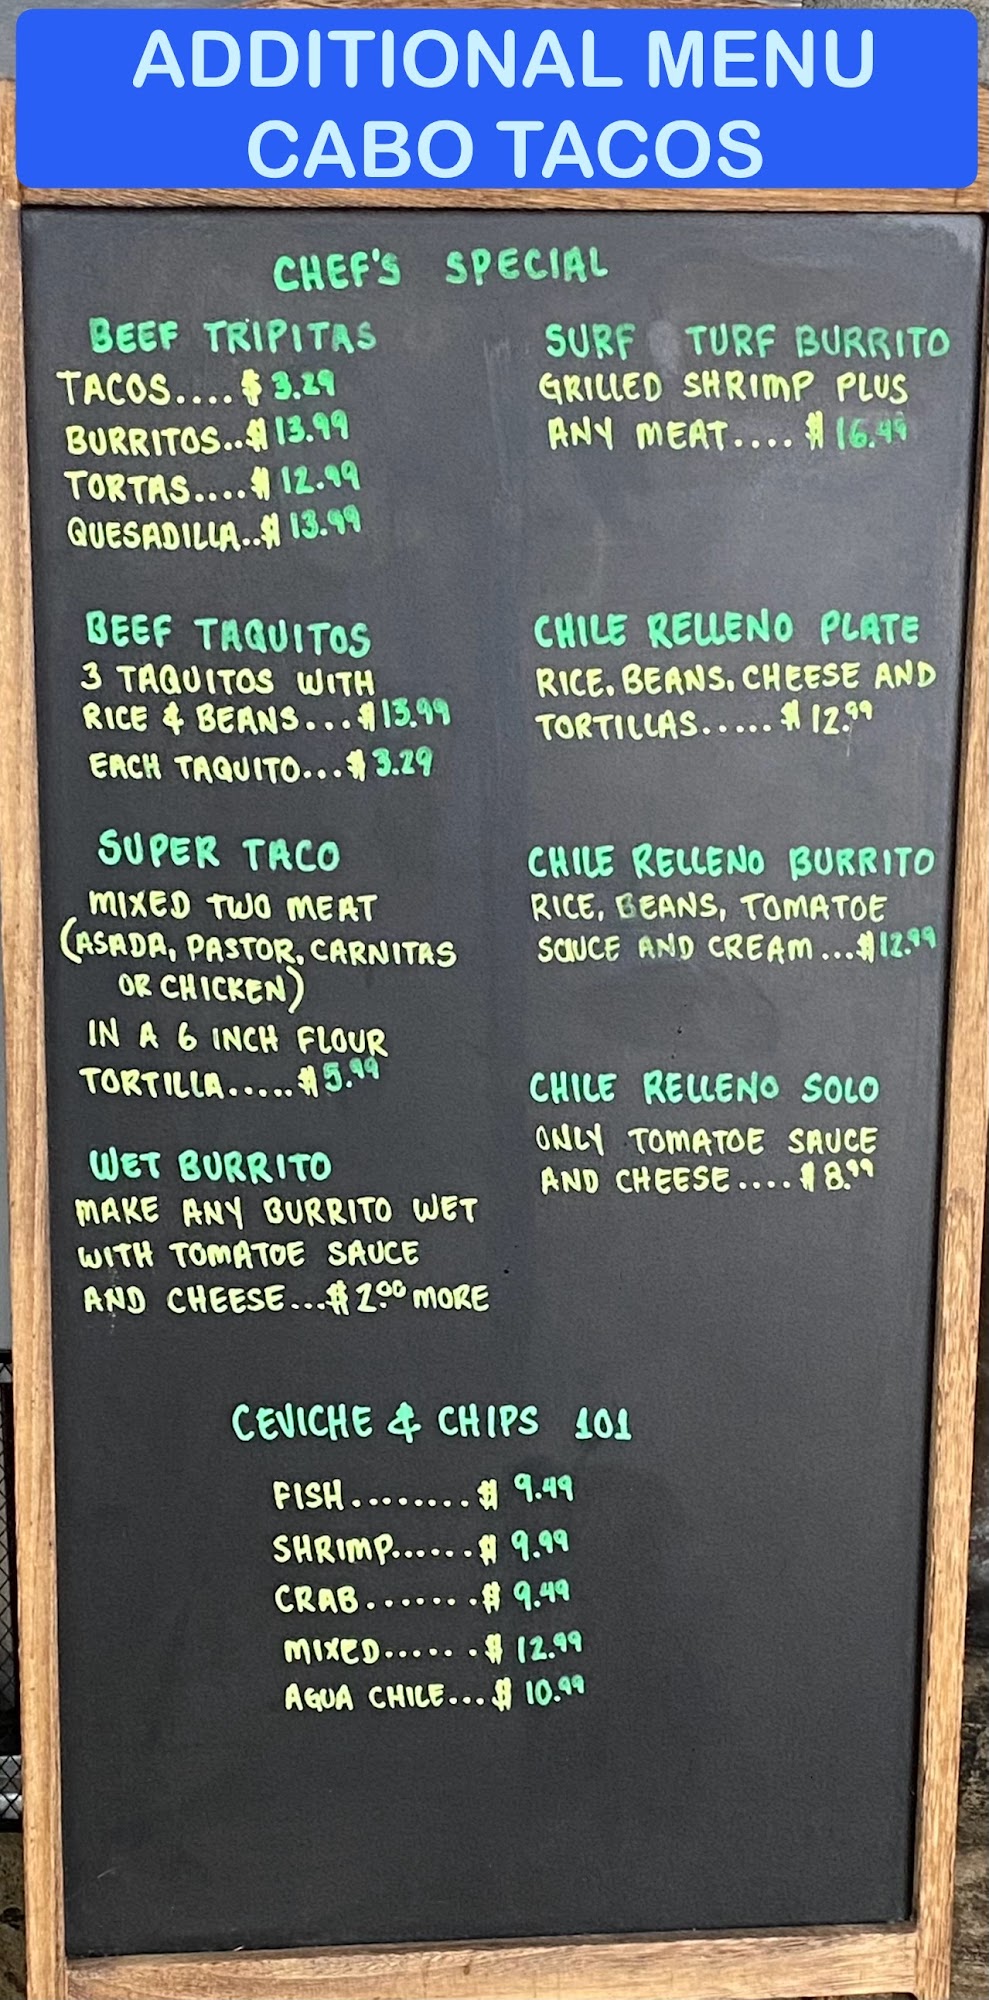 ADDITIONAL MENU
CABO TACOS
CHEF'S SPECIAL
BEEF TRIPITAS
TACOS....$ 3.29
BURRITOS..$ 13.99
TORTAS....$ 12.99
QUESADILLA..$ 13.99
BEEF TAQUITOS
3 TAQUITOS WITH
RICE & BEANS...$13.99
EACH TAQUITO...$ 3.29
SUPER TACO
MIXED TWO MEAT
(ASADA, PASTOR, CARNITAS
OR CHICKEN)
IN A 6 INCH FLOUR
TORTILLA.....$5.99
WET BURRITO
MAKE ANY BURRITO WET
WITH TOMATOE SAUCE
AND CHEESE...$2.00 MORE
SURF TURF BURRITO
GRILLED SHRIMP PLUS
ANY MEAT....$ 16.49
CHILE RELLENO PLATE
RICE, BEANS, CHEESE AND
TORTILLAS.....$ 12.99
CHILE RELLENO BURRITO
RICE, BEANS, TOMATOE
SAUCE AND CREAM...$12.99
CHILE RELLENO SOLO
ONLY TOMATOE SAUCE
AND CHEESE....$ 8.99
CEVICHE & CHIPS 101
FISH........$ 9.49
SHRIMP......$ 9.99
CRAB.......$ 9.49
MIXED......$ 12.99
AGUA CHILE...$ 10.99